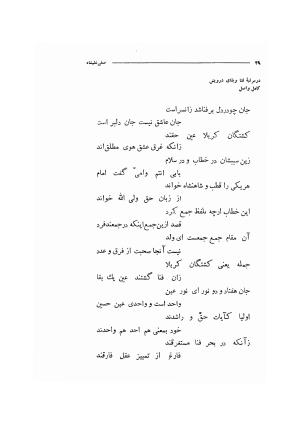 ۲۹ صفی‌علیشاه
در مرتبهٔ فنا و بقای درویش
کامل واصل
جان چو در دل بر فنا شد زانسر است
جان عاشق نیست جان دلبر است
کشتگان کربلا عین حقند
زانکه غرق عشق هوی مطلق‌اند
زین سبب‌شان در خطاب و در سلام
بابی انتم وامی گفت امام
هریکی را قطب و شاهنشاه خواند
از زبان حق ولی الله خواند
این خطاب ارچه بلفظ جمع کرد
قصد از این جمع اینکه در جمعند فرد
آن مقام جمع جمعست ای ولد
نیست آنجا صحبت از فرق و عدد
جمله یعنی کشتگان کربلا
زان فنا گشتند عین یک بقا
جان هفتاد و دو نور ای نور عین
واحد است و واحدی عین حسین
اولیا کایات حق و راشدند
خود بمعنی هم احد هم واحدند
زآنکه در بحر فنا مستغرقند
فارغ از تمییز عقل فارقند